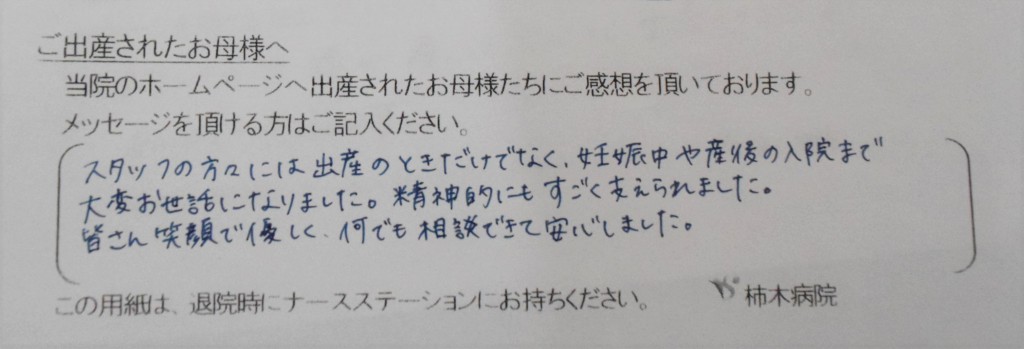 ご出産されたお母様へ
当院のホームページへ出産されたお母様たちにご感想を頂いております。
メッセージを頂ける方はご記入ください。
スタッフの方々には出産のときだけでなく、妊娠中や産後の入院まで
大変お世話になりました。精神的にもすごく支えられました。
皆さん笑顔で優しく、何でも相談できて安心しました。
この用紙は、退院時にナースステーションにお持ちください。
柿木病院